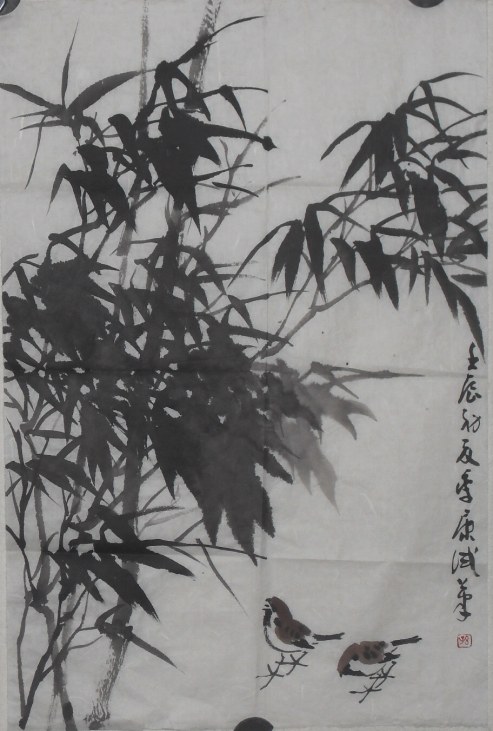 壬辰初夏季康筆